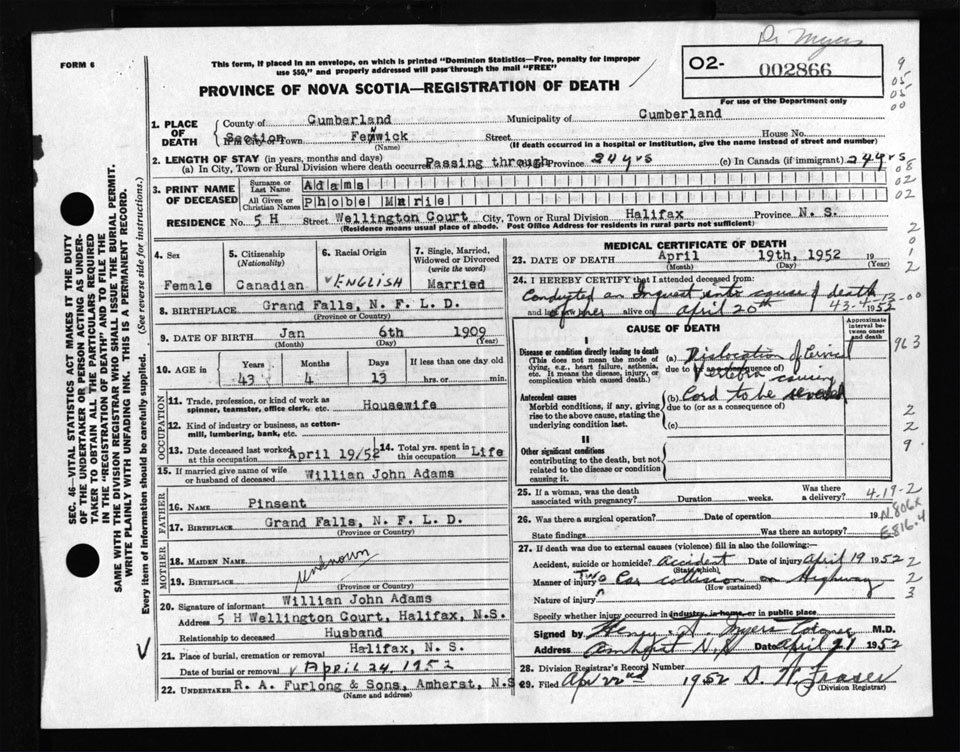 Dr Myers
FORM 6
This form, if placed in an envelope, on which is printed "Dominion Statistics—Free, penalty for improper
use $50," and properly addressed will pass through the mail "FREE"
O2-
002866
PROVINCE OF NOVA SCOTIA—REGISTRATION OF DEATH
For use of the Department only
1. PLACE OF DEATH
County of Cumberland Municipality of Cumberland
Section If in City or Town Fenwick Street House No.
(Name) (If death occurred in a hospital or institution, give the name instead of street and number)
2. LENGTH OF STAY (in years, months and days)
(a) In City, Town or Rural Division where death occurred Passing through Province 24 yrs (c) In Canada (if immigrant) 24 yrs
3. PRINT NAME OF DECEASED
Surname or Last Name Adams
All Given or Christian Names Phobe Marie
RESIDENCE No. 5 H Street Wellington Court City, Town or Rural Division Halifax Province N. S.
(Residence means usual place of abode. Post Office Address for residents in rural parts not sufficient)
4. Sex
Female
5. Citizenship
(Nationality)
Canadian
6. Racial Origin
ENGLISH
7. Single, Married, Widowed or Divorced
(write the word)
Married
8. BIRTHPLACE Grand Falls, N. F. L. D.
(Province or Country)
9. DATE OF BIRTH Jan 6th 1909
(Month) (Day) (Year)
10. AGE in
Years Months Days If less than one day old
43 4 13 hrs. or min.
OCCUPATION
11. Trade, profession, or kind of work as
spinner, teamster, office clerk, etc. Housewife
12. Kind of industry or business, as cotton-
mill, lumbering, bank, etc.
13. Date deceased last worked at this occupation April 19/52
14. Total yrs. spent in this occupation Life
15. If married give name of wife
or husband of deceased Willian John Adams
FATHER
16. Name Pinsent
17. BIRTHPLACE Grand Falls, N. F. L. D.
(Province or Country)
MOTHER
18. MAIDEN NAME
unknown
19. BIRTHPLACE
(Province or Country)
20. Signature of informant Willian John Adams
Address 5 H Wellington Court, Halifax, N.S.
Relationship to deceased Husband
21. Place of burial, cremation or removal Halifax, N. S.
Date of burial or removal April 24, 1952
22. UNDERTAKER R. A. Furlong & Sons, Amherst, N.S
(Name and address)
MEDICAL CERTIFICATE OF DEATH
23. DATE OF DEATH April 19th, 1952 19
(Month) (Day) (Year)
24. I HEREBY CERTIFY that I attended deceased from:
Conducted an Inquest into cause of death
and last saw her alive on April 20th 1952
43-4-13-00
CAUSE OF DEATH
Approximate interval between onset and death
I
Disease or condition directly leading to death
(This does not mean the mode of dying, e.g., heart failure, asthenia, etc. It means the disease, injury, or complication which caused death.)
(a) Dislocation of Cervical
due to (or as a consequence of)
Vertebra causing
Antecedent causes
Morbid conditions, if any, giving rise to the above cause, stating the underlying condition last.
(b) Cord to be severed
due to (or as a consequence of)
(c)
II
Other significant conditions
contributing to the death, but not related to the disease or condition causing it.
25. If a woman, was the death associated with pregnancy? Duration weeks. Was there a delivery?
4-19-2
26. Was there a surgical operation? Date of operation 19
State findings Was there an autopsy?
N.806X
E816.4
27. If death was due to external causes (violence) fill in also the following:—
Accident, suicide or homicide? accident Date of injury April 19 1952
(State which)
Manner of injury Two Car collision on Highway
(How sustained)
Nature of injury
Specify whether injury occurred in industry, in home, or in public place
Signed by Henry A. Myers Coroner M.D.
Address Amherst N.S Date April 21 1952
28. Division Registrar's Record Number
29. Filed Apr 22nd 1952 D. W. Fraser
(Division Registrar)
SEC. 46—VITAL STATISTICS ACT MAKES IT THE DUTY
OF THE UNDERTAKER OR PERSON ACTING AS UNDER-
TAKER TO OBTAIN ALL THE PARTICULARS REQUIRED
IN THE "REGISTRATION OF DEATH" AND TO FILE THE
SAME WITH THE DIVISION REGISTRAR WHO SHALL ISSUE THE BURIAL PERMIT.
WRITE PLAINLY WITH UNFADING INK. THIS IS A PERMANENT RECORD.
Every item of information should be carefully supplied. (See reverse side for instructions.)
9
05
05
00
08
02
02
2
0
1
2
963
2
2
9
2
2
3